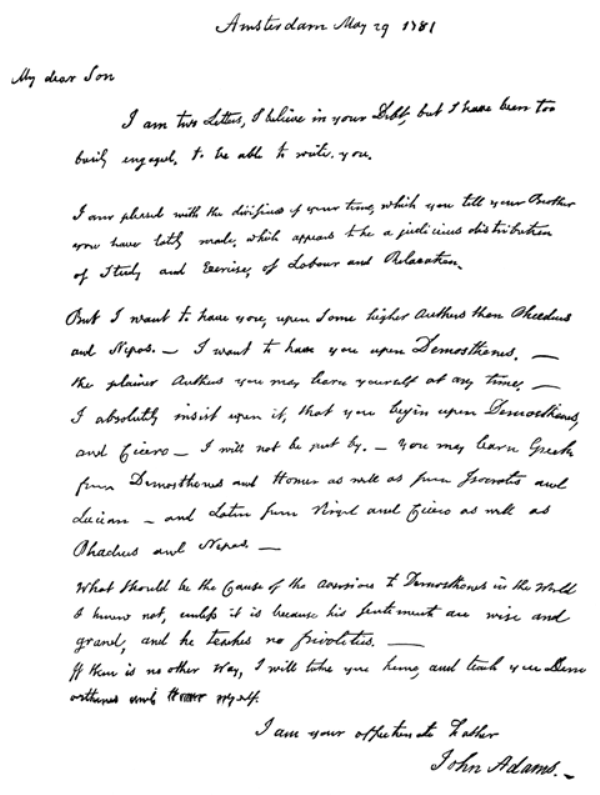 Amsterdam May 29 1781
My dear Son
I am two Letters, I believe in your Debt, but I have been too
busily engaged, to be able to write you.
I am pleased with the divisions of your time, which you tell your Brother
you have lately made, which appears to be a judicious distribution
of Study and Exercise, of Labour and Relaxation.
But I want to have you, upon some higher Authors than Phaedrus
and Nepos. — I want to have you upon Demosthenes. —
the plainer Authors you may learn yourself at any time. —
I absolutely insist upon it, that you begin upon Demosthenes,
and Cicero — I will not be put by. — you may learn Greek
from Demosthenes and Homer as well as from Isocrates and
Lucian — and Latin from Virgil and Cicero as well as
Phadrus and Nepos. —
What should be the Cause of the aversion to Demosthenes in the World
I know not, unless it is because his sentiments are wise and
grand, and he teaches no frivolities. —
If there is no other Way, I will take you home, and teach you Demo
sthenes and Homer myself.
I am your affectionate Father
John Adams. —